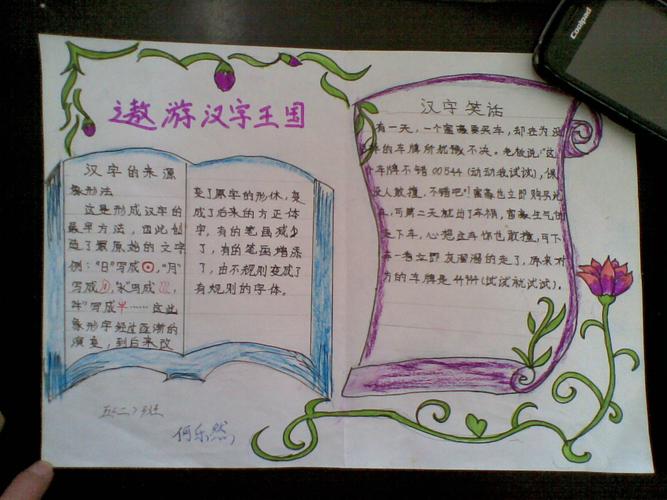 遨游汉字王国
汉字的来源
象形法
这是形成汉字的
最早方法，由此创
造了最原始的文字
例："日"写成 ，"月"
写成 ，"水"写成 ，
"牛"写成 ……这些
象形字经过逐渐的
演变，到后来改
变了原字的形体，变
成了后来的方正体
字，有的笔画减少
了，有的笔画增添
了，由不规则变成了
有规则的字体。
五(二)班
何乐然
汉字笑话
有一天，一个富豪要买车，却在为
车的车牌所犹豫不决。老板说："这
车牌不错00544(动动我试试)，保
没人敢撞，不错吧!富豪也立即购买
车，可第二天就出了车祸，富豪生气的
走下车，心想这车你也敢撞，可下
车一看立即灰溜溜的走了，原来对
方的车牌是44944(试试就试试)。
Coolpad